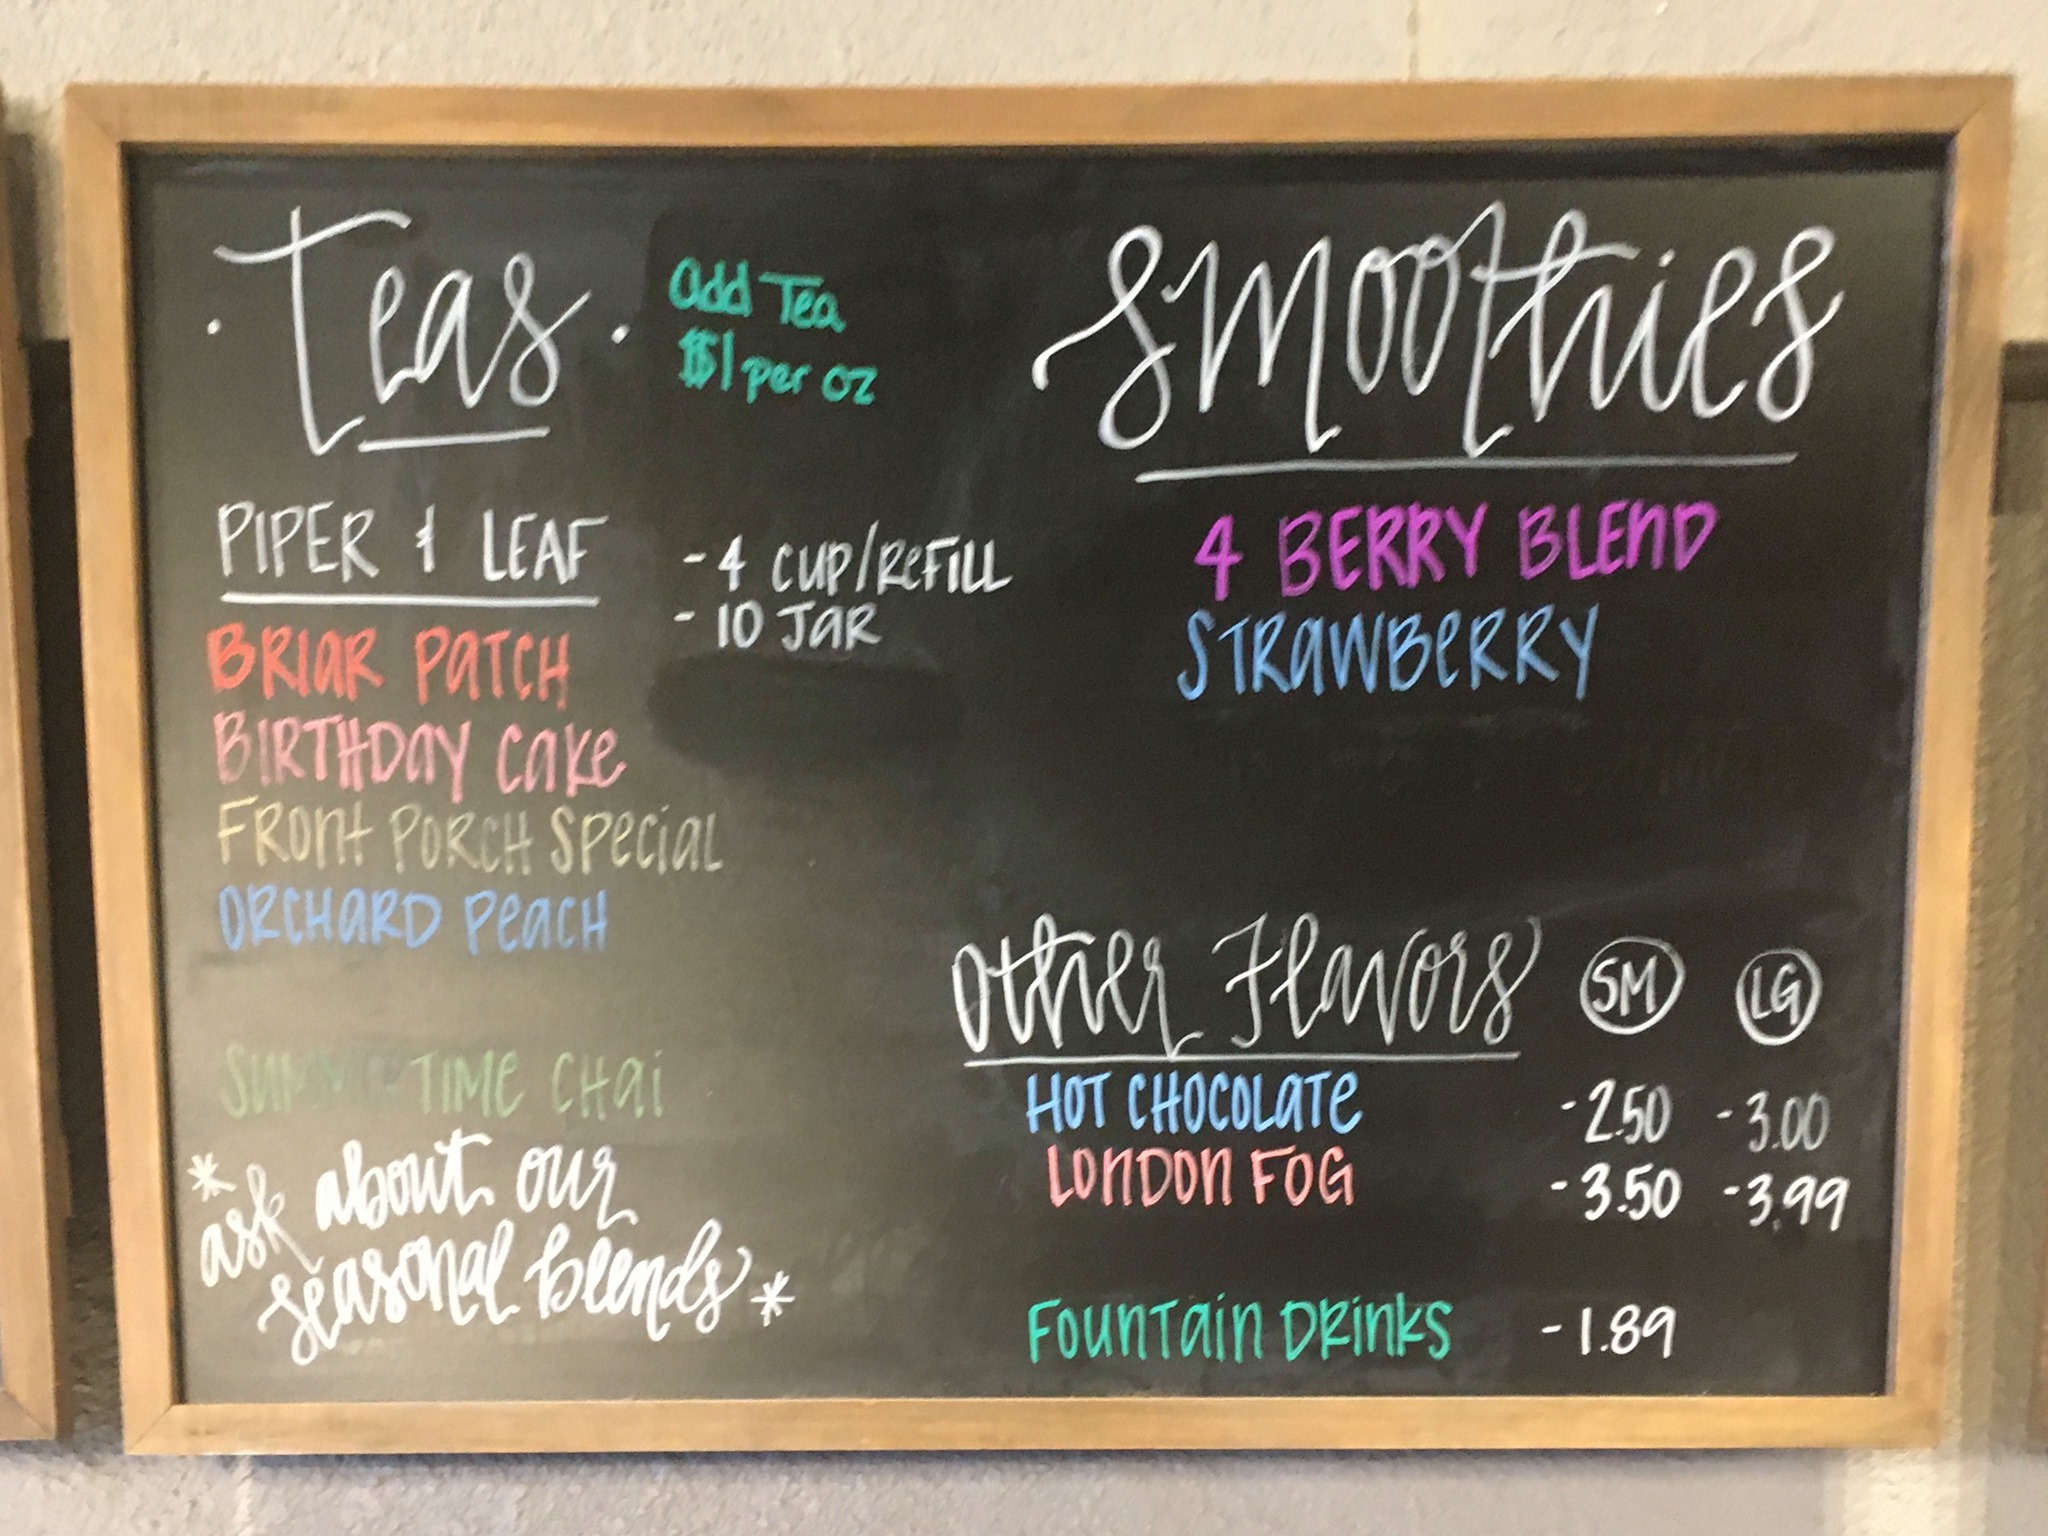 Teas
Add Tea
$1 per oz
PIPER & LEAF
- 4 CUP/REFILL
- 10 JAR
BRIAR PATCH
BIRTHDAY CAKE
FRONT PORCH SPECIAL
ORCHARD PEACH
SUMMERTIME CHAI
*ask about our
seasonal blends*
Smoothies
4 BERRY BLEND
STRAWBERRY
Other Flavors SM LG
HOT CHOCOLATE -2.50 -3.00
LONDON FOG -3.50 -3.99
FOUNTAIN DRINKS -1.89